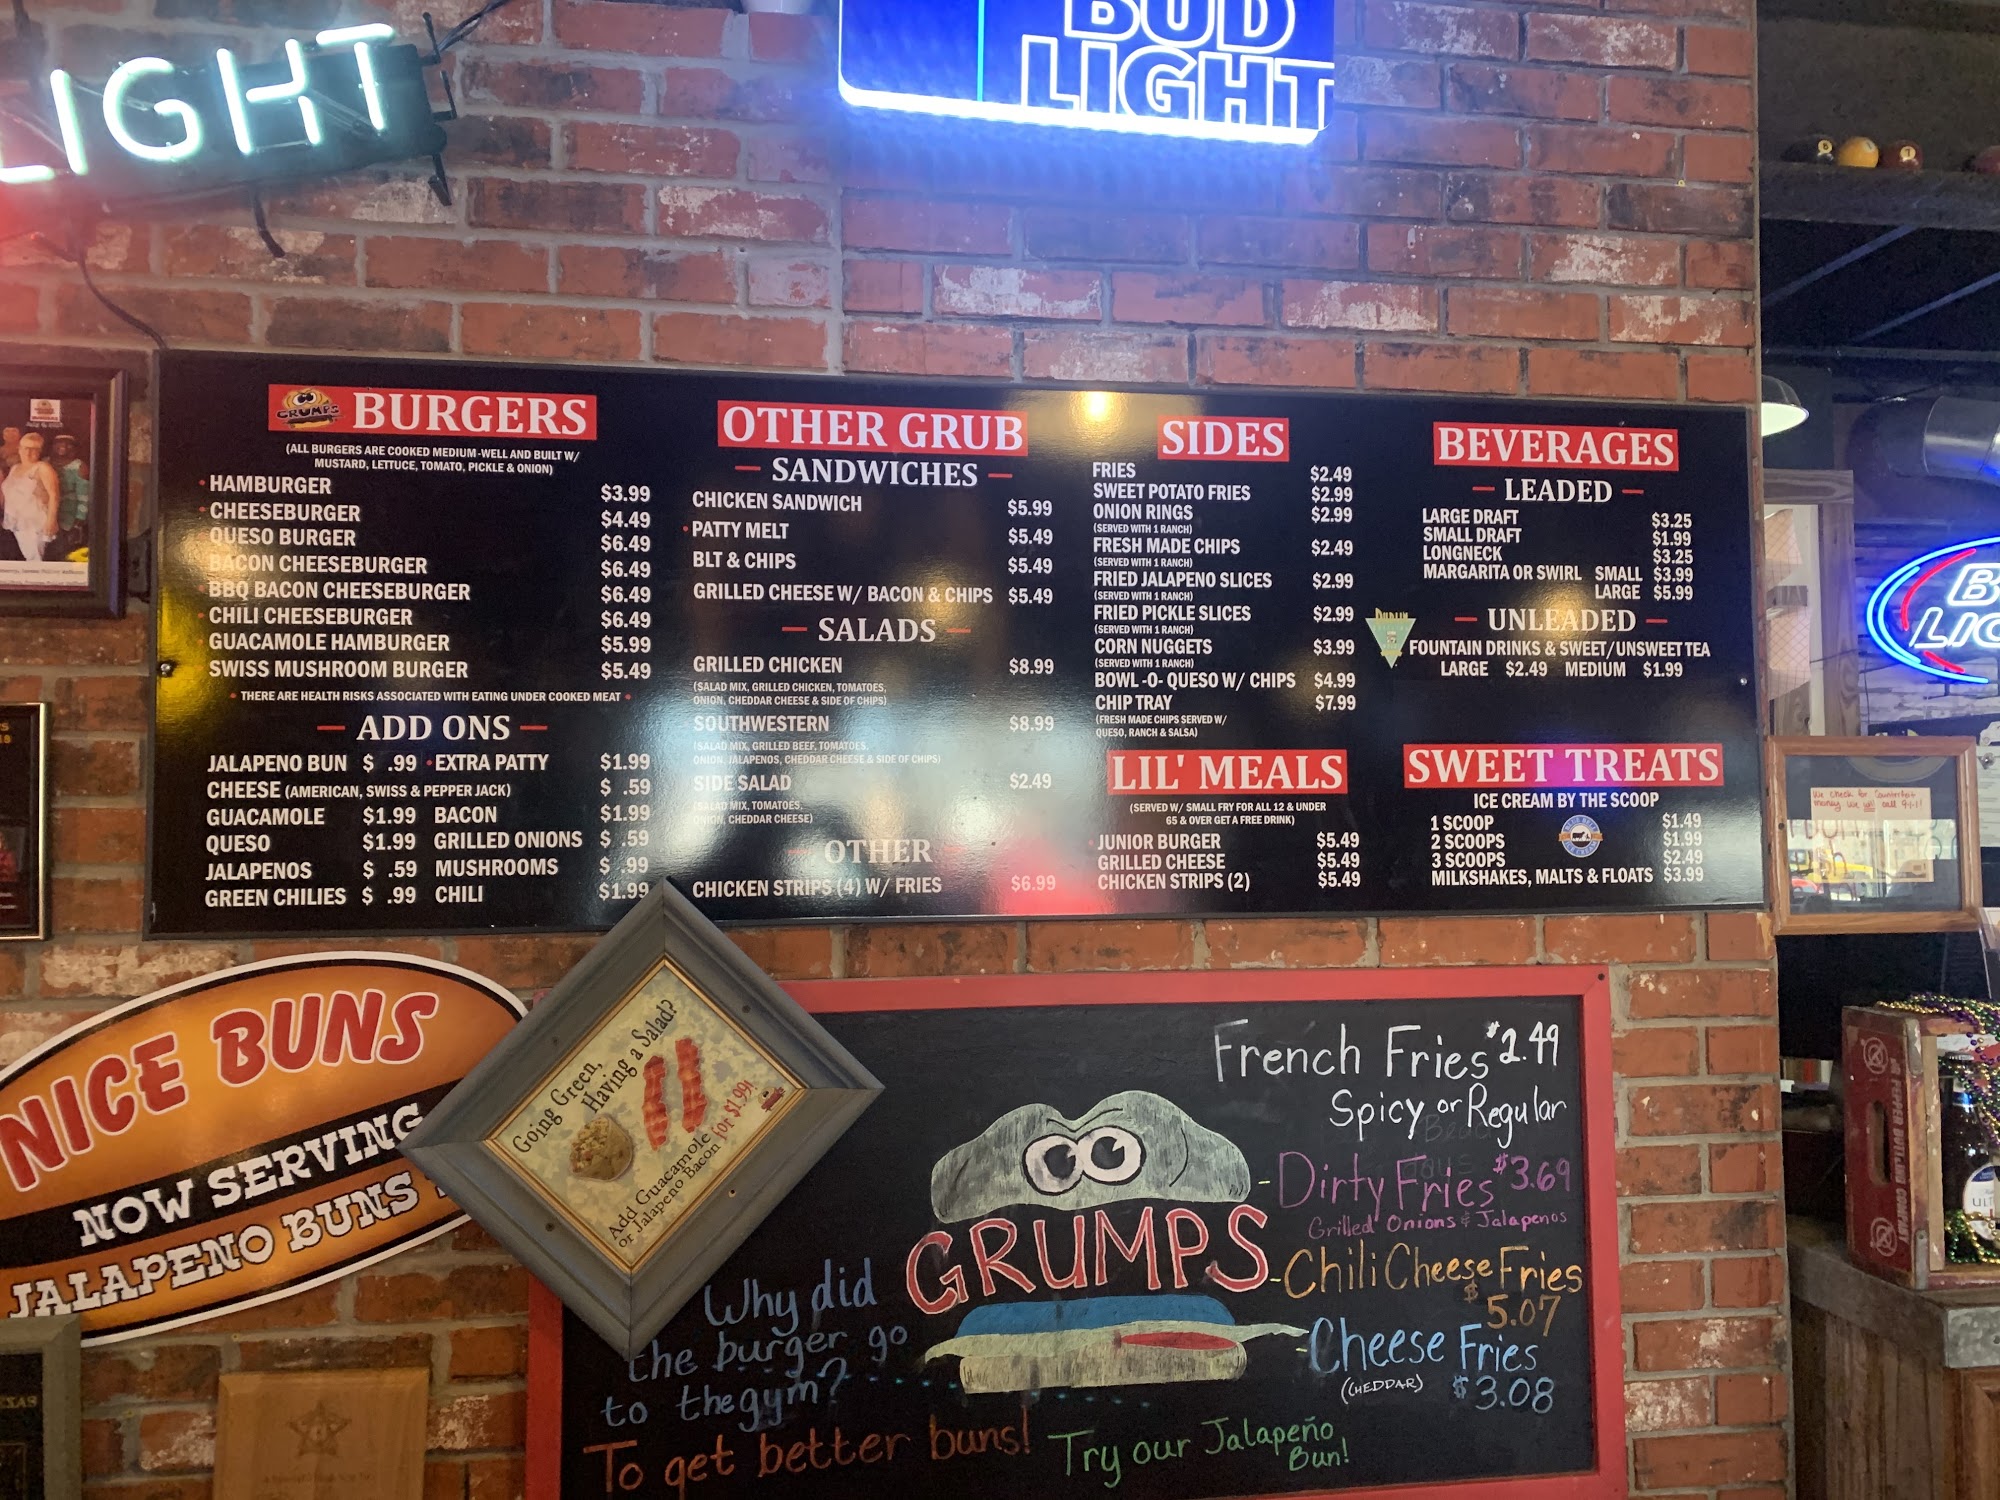 LIGHT
BUD
LIGHT
GRUMPS BURGERS
(ALL BURGERS ARE COOKED MEDIUM-WELL AND BUILT W/
MUSTARD, LETTUCE, TOMATO, PICKLE & ONION)
• HAMBURGER $3.99
• CHEESEBURGER $4.49
• QUESO BURGER $6.49
• BACON CHEESEBURGER $6.49
• BBQ BACON CHEESEBURGER $6.49
• CHILI CHEESEBURGER $6.49
GUACAMOLE HAMBURGER $5.99
SWISS MUSHROOM BURGER $5.49
• THERE ARE HEALTH RISKS ASSOCIATED WITH EATING UNDER COOKED MEAT •
— ADD ONS —
JALAPENO BUN $ .99 • EXTRA PATTY $1.99
CHEESE (AMERICAN, SWISS & PEPPER JACK) $ .59
GUACAMOLE $1.99 BACON $1.99
QUESO $1.99 GRILLED ONIONS $ .59
JALAPENOS $ .59 MUSHROOMS $ .99
GREEN CHILIES $ .99 CHILI $1.99
OTHER GRUB
— SANDWICHES —
CHICKEN SANDWICH $5.99
• PATTY MELT $5.49
BLT & CHIPS $5.49
GRILLED CHEESE W/ BACON & CHIPS $5.49
— SALADS —
GRILLED CHICKEN $8.99
(SALAD MIX, GRILLED CHICKEN, TOMATOES,
ONION, CHEDDAR CHEESE & SIDE OF CHIPS)
SOUTHWESTERN $8.99
(SALAD MIX, GRILLED BEEF, TOMATOES,
ONION, JALAPENOS, CHEDDAR CHEESE & SIDE OF CHIPS)
SIDE SALAD $2.49
(SALAD MIX, TOMATOES,
ONION, CHEDDAR CHEESE)
— OTHER —
CHICKEN STRIPS (4) W/ FRIES $6.99
SIDES
FRIES $2.49
SWEET POTATO FRIES $2.99
ONION RINGS $2.99
(SERVED WITH 1 RANCH)
FRESH MADE CHIPS $2.49
(SERVED WITH 1 RANCH)
FRIED JALAPENO SLICES $2.99
(SERVED WITH 1 RANCH)
FRIED PICKLE SLICES $2.99
(SERVED WITH 1 RANCH)
CORN NUGGETS $3.99
(SERVED WITH 1 RANCH)
BOWL -O- QUESO W/ CHIPS $4.99
CHIP TRAY $7.99
(FRESH MADE CHIPS SERVED W/
QUESO, RANCH & SALSA)
LIL' MEALS
(SERVED W/ SMALL FRY FOR ALL 12 & UNDER
65 & OVER GET A FREE DRINK)
JUNIOR BURGER $5.49
GRILLED CHEESE $5.49
CHICKEN STRIPS (2) $5.49
BEVERAGES
— LEADED —
LARGE DRAFT $3.25
SMALL DRAFT $1.99
LONGNECK $3.25
MARGARITA OR SWIRL SMALL $3.99
LARGE $5.99
— UNLEADED —
FOUNTAIN DRINKS & SWEET/UNSWEET TEA
LARGE $2.49 MEDIUM $1.99
SWEET TREATS
ICE CREAM BY THE SCOOP
1 SCOOP $1.49
2 SCOOPS $1.99
3 SCOOPS $2.49
MILKSHAKES, MALTS & FLOATS $3.99
We check for Counterfeit
money. We will call 911!
NICE BUNS
NOW SERVING
JALAPENO BUNS
Going Green,
Having a Salad?
Add Guacamole
or Jalapeno Bacon for $1.99!
French Fries $2.49
Spicy or Regular
-Dirty Fries $3.69
Grilled Onions & Jalapenos
-Chili Cheese Fries
$5.07
-Cheese Fries
(CHEDDAR) $3.08
GRUMPS
Why did
the burger go
to the gym?
To get better buns!
Try our Jalapeño
Bun!
DR PEPPER BOTTLING COMPANY